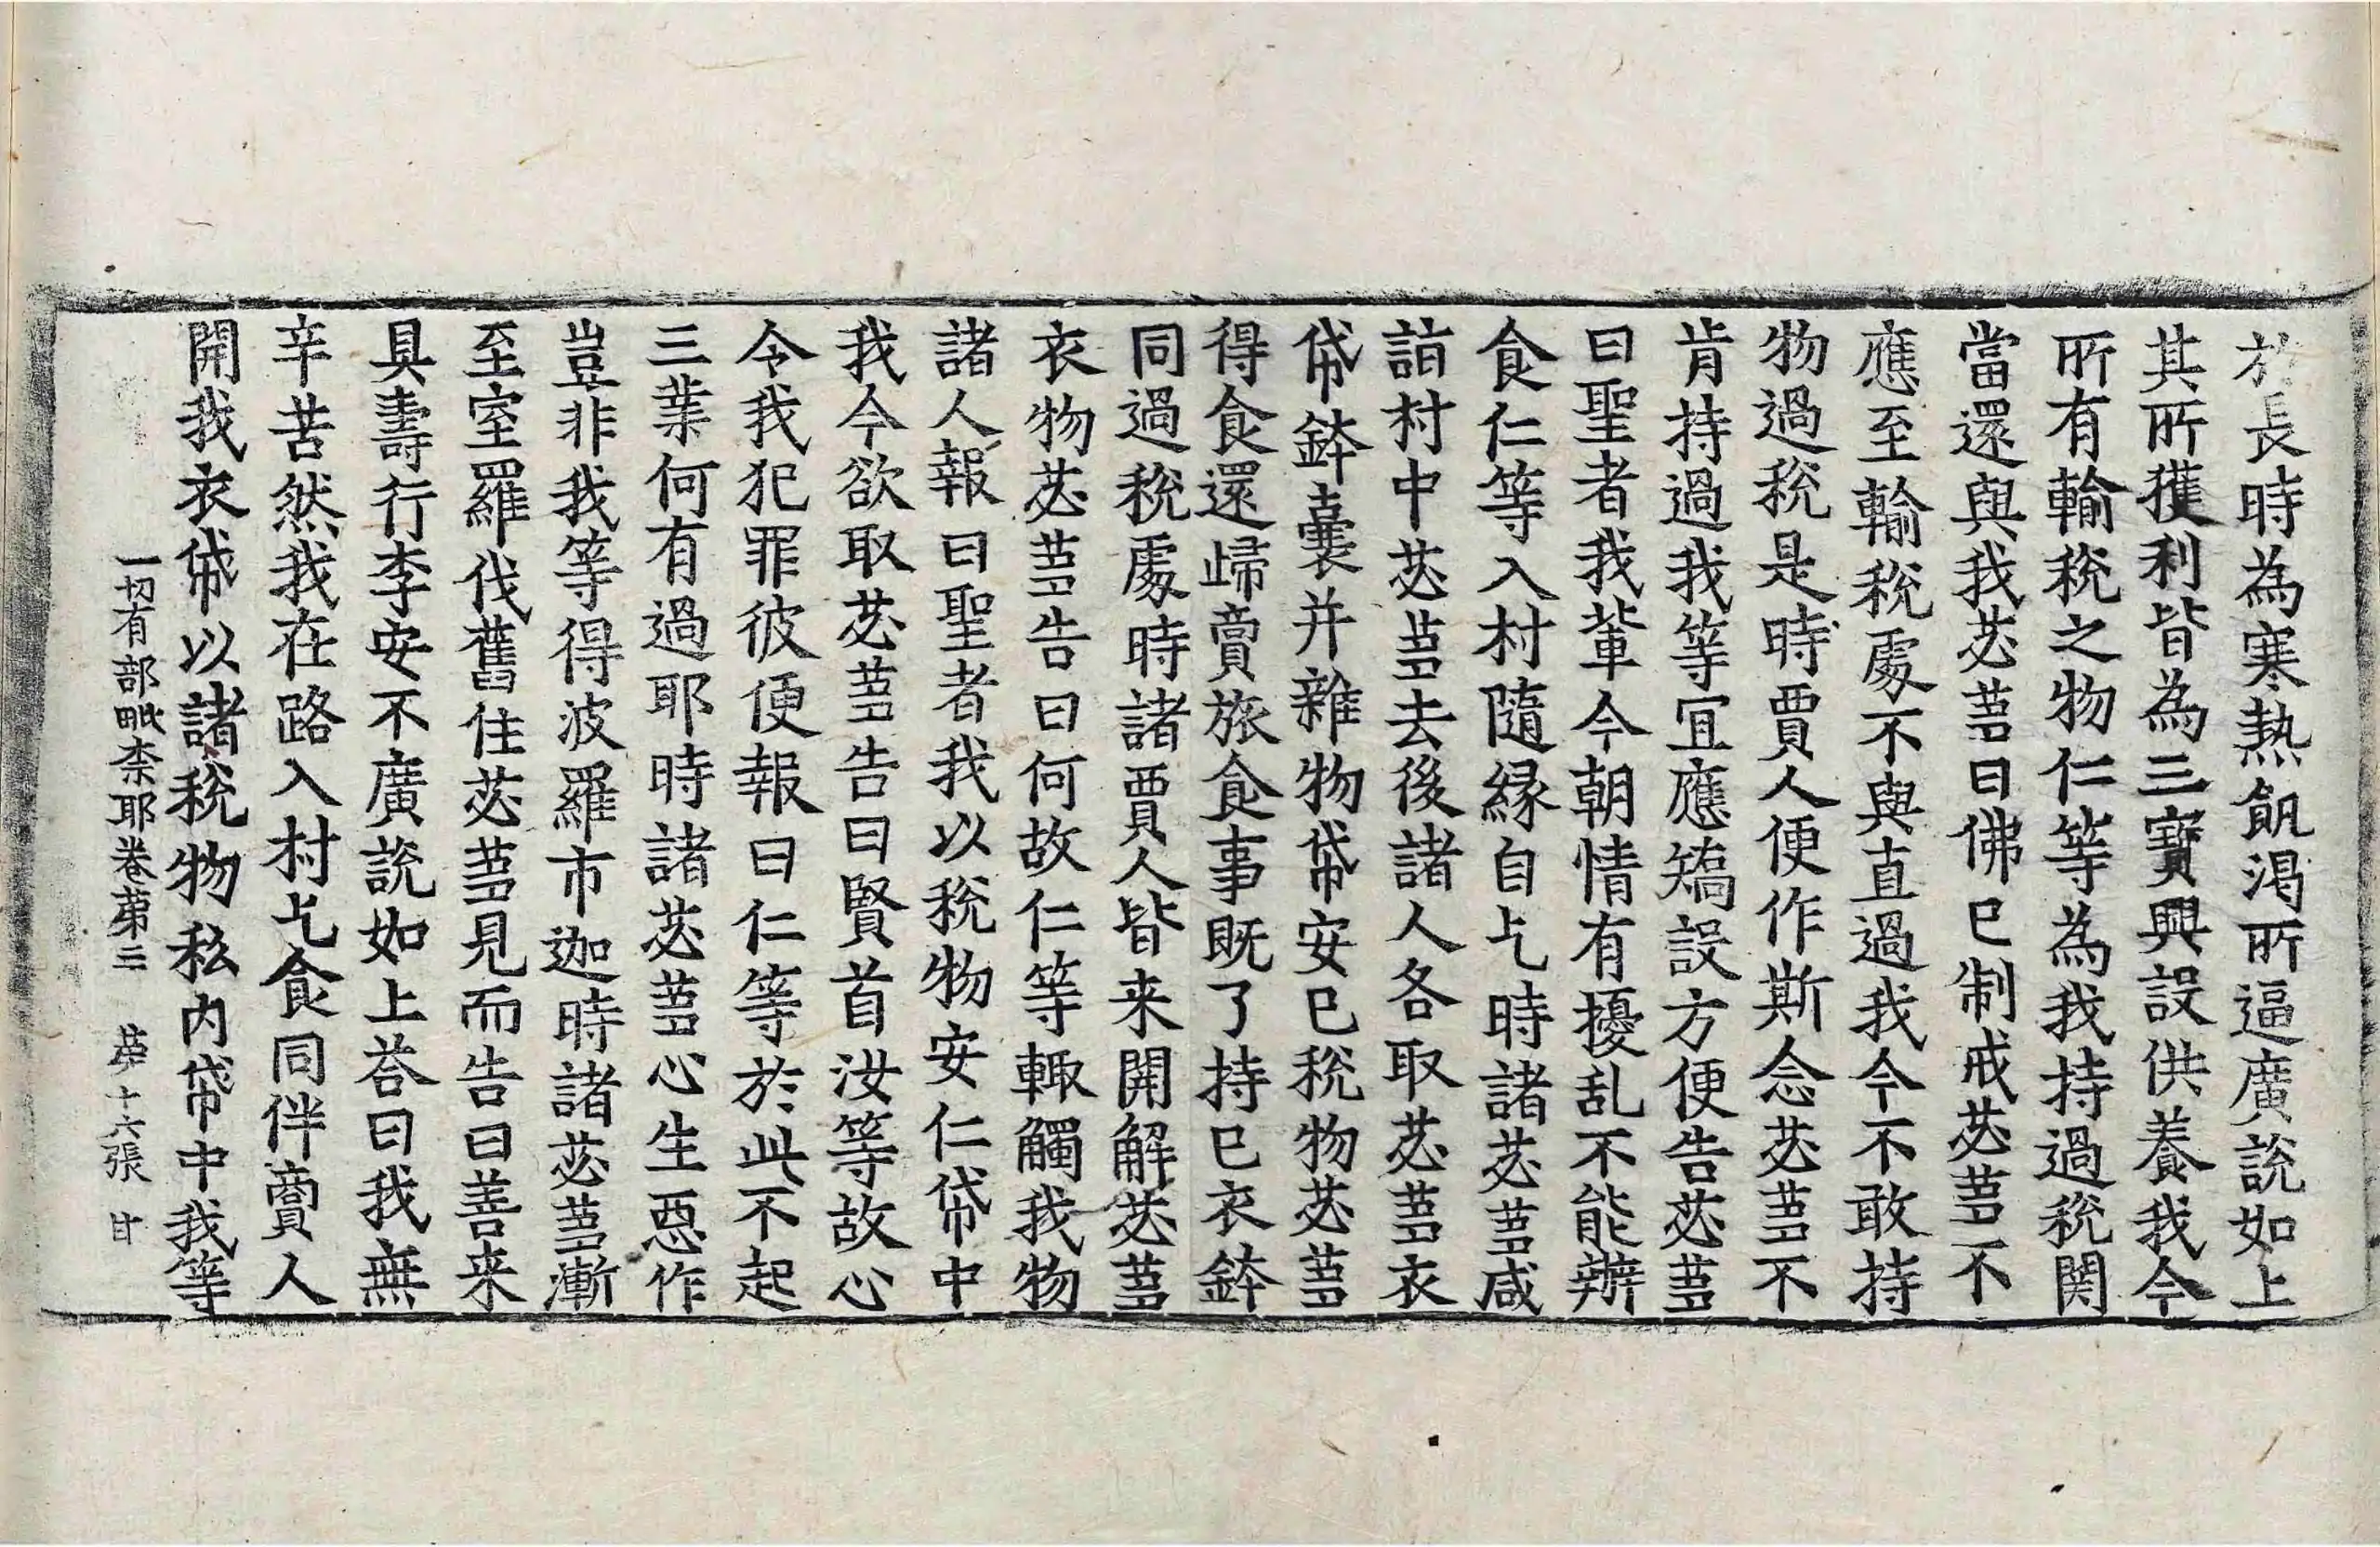 於長時為寒熱飢渴所逼廣說如上
其所獲利皆為三寶興設供養我今
所有輸稅之物仁等為我持過稅関
當還與我苾蒭曰佛已制戒苾蒭不
應至輸稅處不與直過我今不敢持
物過稅是時賈人便作斯念苾蒭不
肯持過我等宜應矯設方便告苾蒭
曰聖者我輩今朝情有擾乱不能辦
食仁等入村隨緣自乞時諸苾蒭咸
詣村中苾蒭去後諸人各取苾蒭衣
帒鉢囊并雜物帒安已稅物苾蒭
得食還歸賣旅食事既了持已衣鉢
同過稅處時諸賈人皆来開解苾蒭
衣物苾蒭告曰何故仁等輙觸我物
諸人報曰聖者我以稅物安仁帒中
我今欲取苾蒭告曰賢首汝等故心
令我犯罪彼便報曰仁等於此不起
三業何有過耶時諸苾蒭心生惡作
豈非我等得波羅市迦時諸苾蒭漸
至室羅伐舊住苾蒭見而告曰善来
具壽行李安不廣說如上荅曰我無
辛苦然我在路入村乞食同伴賣人
開我衣帒以諸稅物私内帒中我等
一切有部毗柰耶卷第三 第十六張 甘